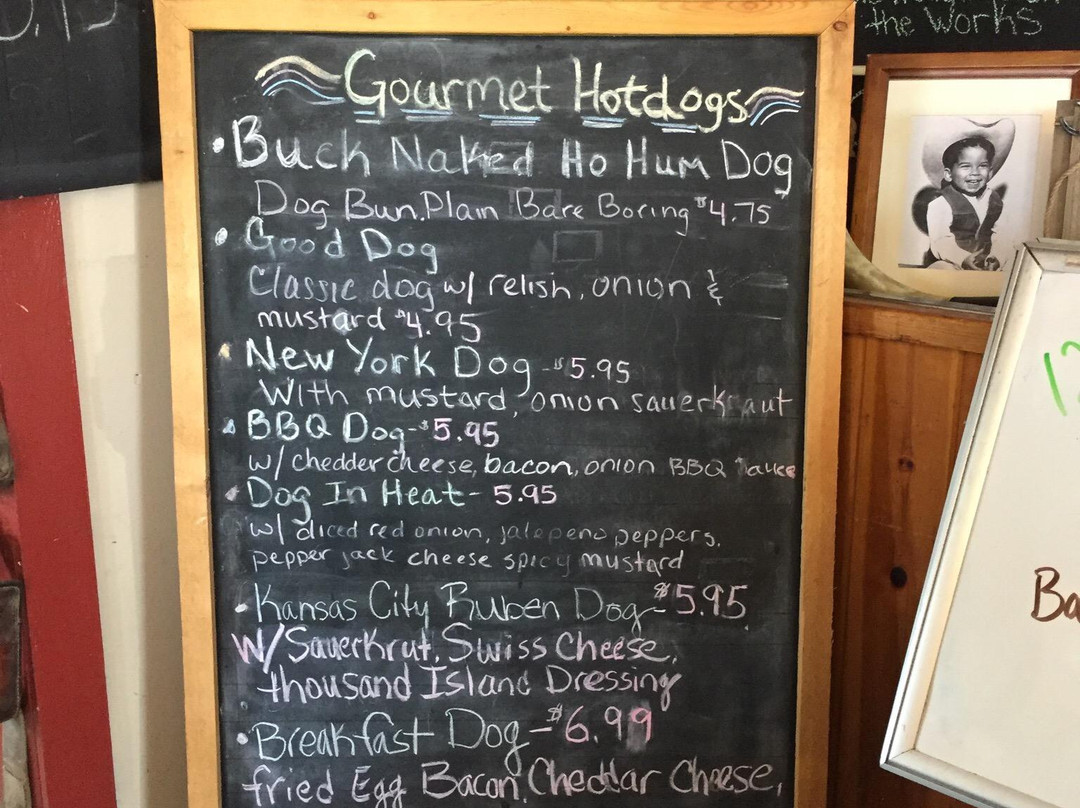 the Works
Gourmet Hotdogs
• Buck Naked Ho Hum Dog
Dog Bun. Plain Bare Boring $4.75
• Good Dog
Classic dog w/ relish, onion &
mustard $4.95
• New York Dog - $5.95
With mustard, onion sauerkraut
• BBQ Dog - $5.95
w/ chedder cheese, bacon, onion BBQ Sauce
• Dog In Heat - 5.95
w/ diced red onion, jalepeno peppers,
pepper jack cheese spicy mustard
• Kansas City Ruben Dog - $5.95
W/ Sauerkrut, Swiss Cheese,
thousand Island Dressing
• Breakfast Dog - $6.99
fried Egg Bacon, Cheddar Cheese,